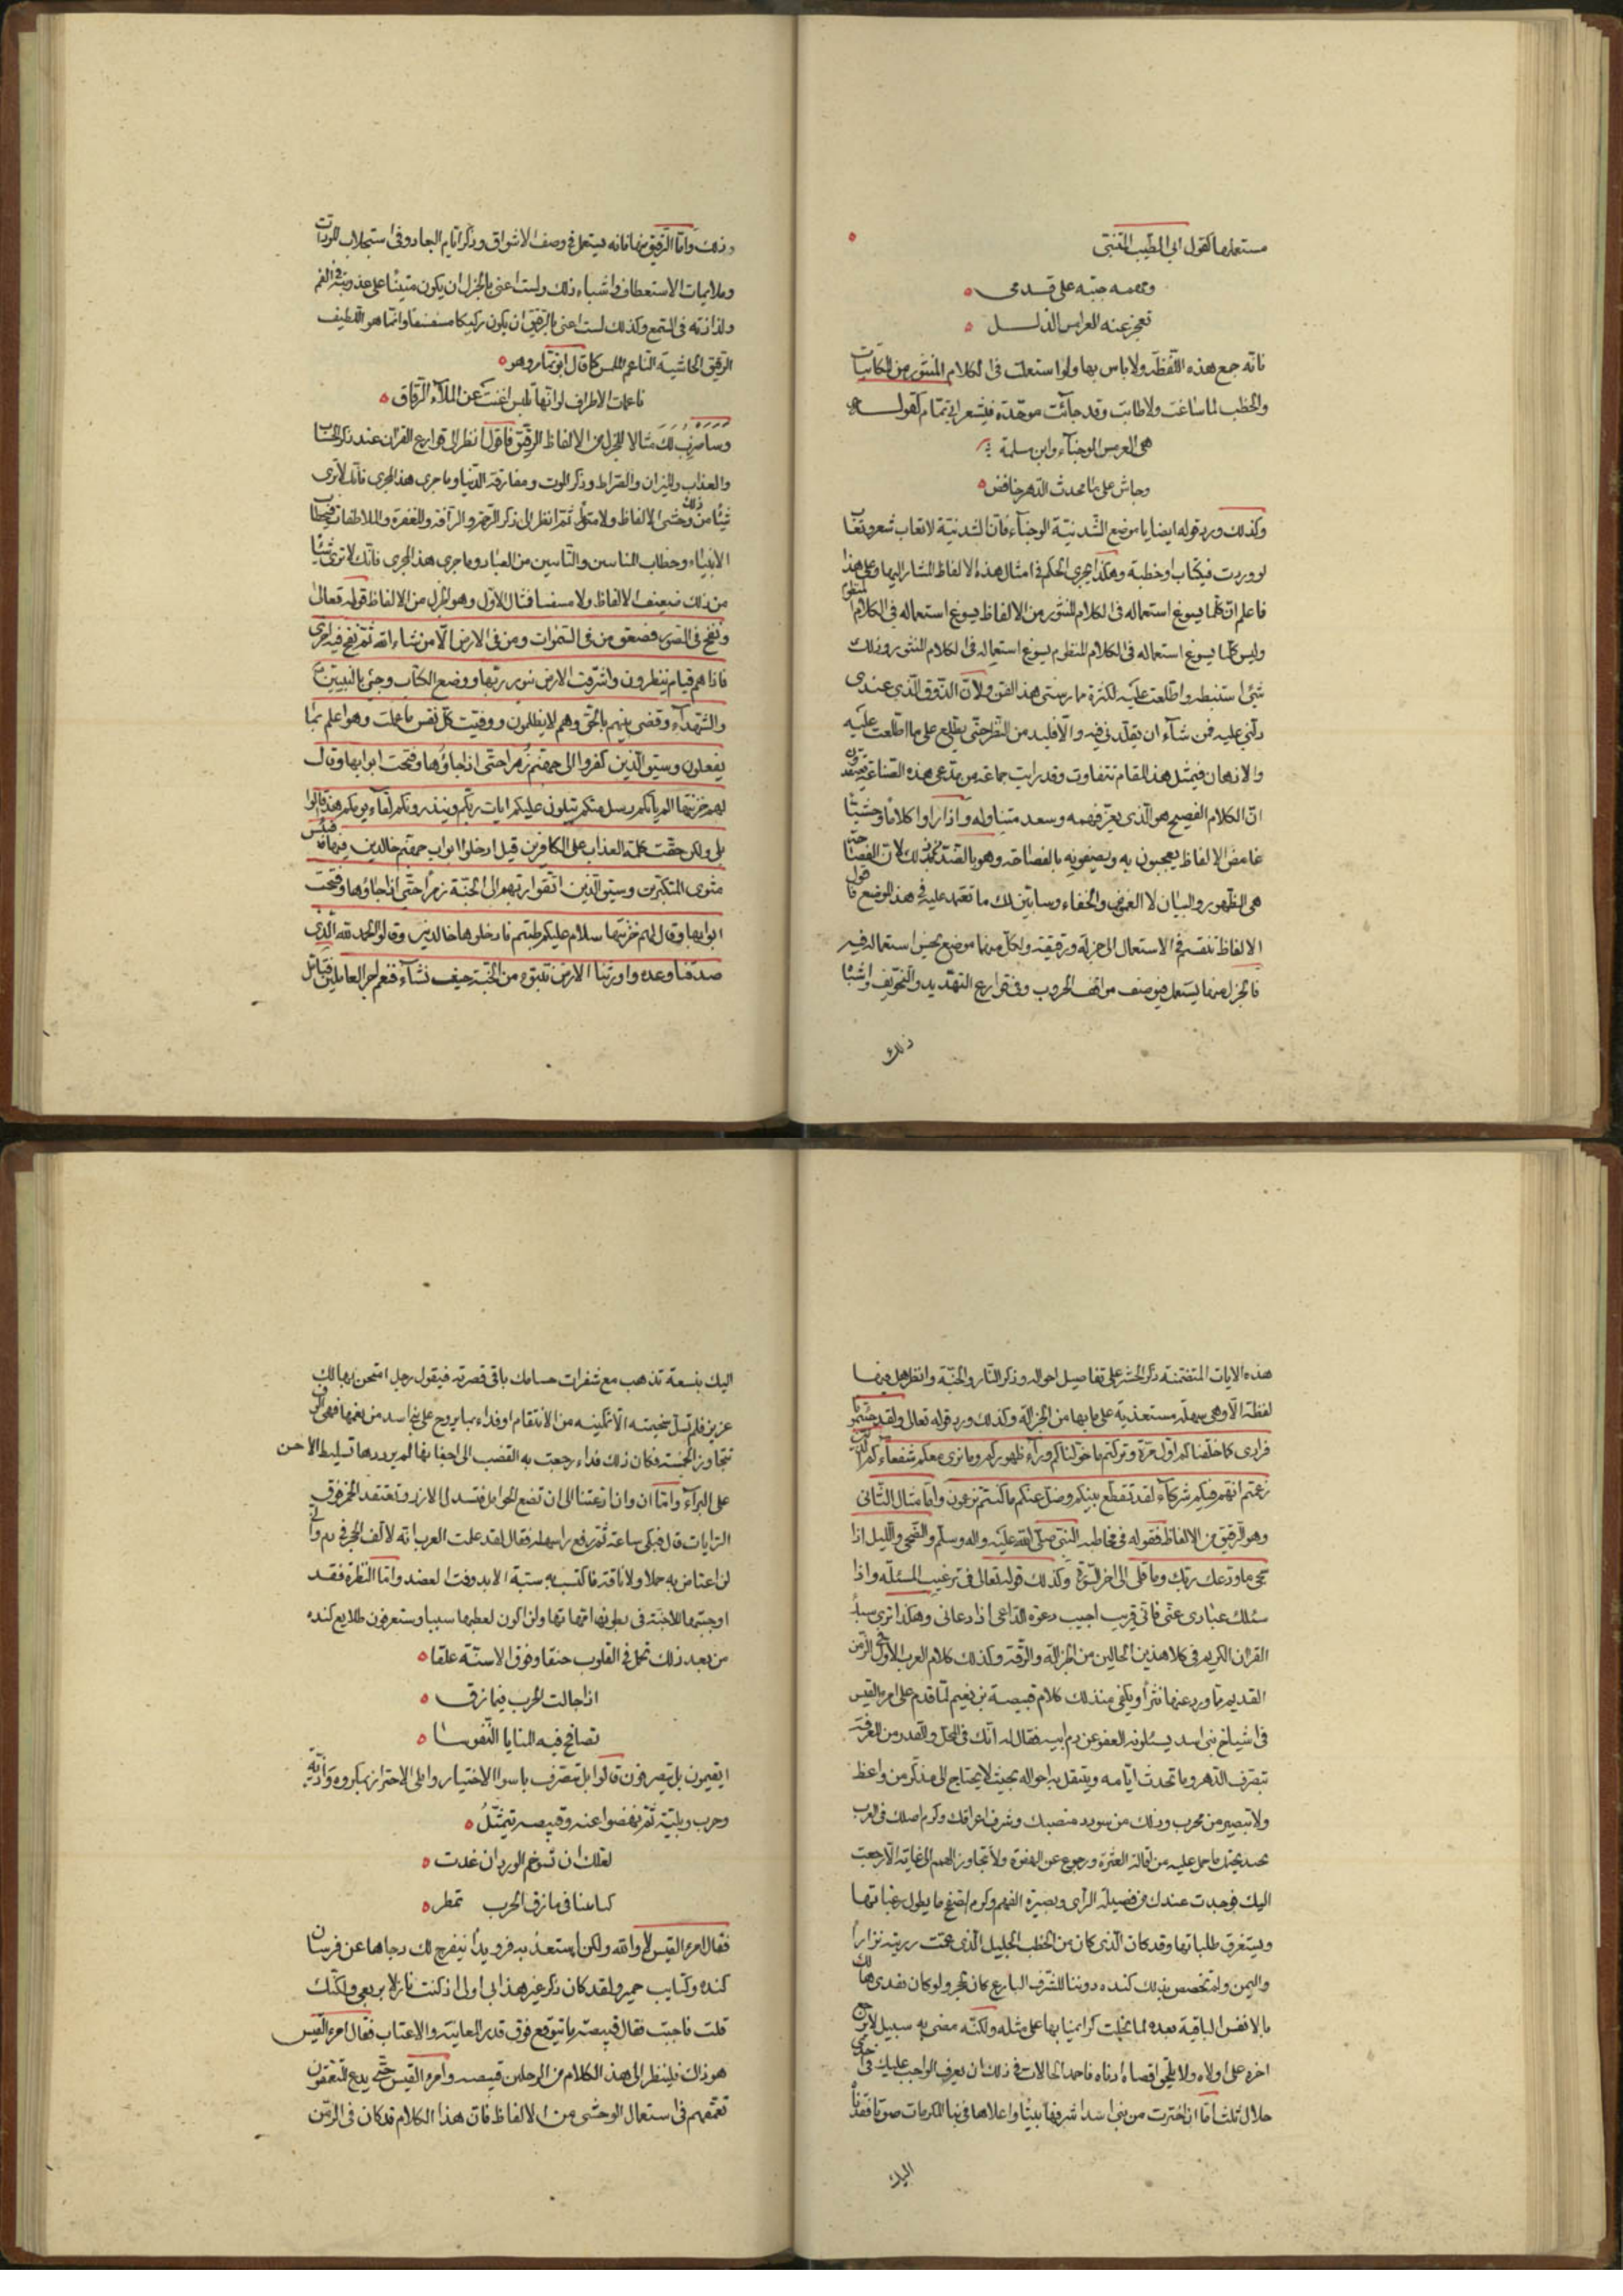 مستعملها كقول ابى الطيب المتنبى
ومهمه جبته على قدمى
تعجز عنه العرامس الذلل
فانه جمع هذه اللفظة ولا باس بها ولو استعملت فى الكلام المنثور من المكاتبات
والخطب لما ساغت ولا طابت وقد جآئت موحّدة فى شعر ابى تمام كقوله
هى العرمس الوجنآء وابن ملمة
وجاش على ما يحدث الدهر خافض
وكذلك ورد قوله ايضا يا موضع الشّدنيّة الوجنآء فانّ الشدنية لا تعاب شعرا وتعاب
لو وردت فى كتاب او خطبة وهكذا يجرى الحكم فى امثال هذه الالفاظ المشار اليها وعلى هذا
فاعلم ان كلما يسوغ استعماله فى الكلام المنثور من الالفاظ يسوغ استعماله فى الكلام المنظوم
وليس كلما يسوغ استعماله فى الكلام المنظوم يسوغ استعماله فى الكلام المنثور وذلك
شئ استنبطه واطلعت عليه لكثرة ممارستى هذا الفن ولانّ الذوق الّذى عندى
دلّنى عليه فمن شآء ان يقلّدنى فيه والّا فليد من النظر حتى يطّلع على ما اطّلعت عليه
والاذهان فى مثل هذا المقام تتفاوت وقد رايت جماعة من مدّعى هذه الصّناعة يعتقدون
انّ الكلام الفصيح هو الّذى يعزّ فهمه وبعد متناوله واذا راوا كلامًا وحشيّا
غامض الالفاظ يعجبون به ويصفونه بالفصاحة وهو بالضد من ذلك لانّ الفصاحة
هى الظهور والبيان لا الغموض والخفاء وسابيّن لك ما تعتمد عليه فى هذا الموضع فاقول
الالفاظ تنقسم فى الاستعمال الى جزلة ورقيقة ولكل منهما موضع يحسن استعماله فيه
فالجزل منها يستعمل فى وصف مواقف الحروب وفى قوارع التهديد والتخويف واشباه
ذلك
وذلك وامّا الرّقيق منها فانه يستعمل فى وصف الاشواق وذكر ايام البعاد وفى استجلاب المودات
وملاينات الاستعطاف واشباه ذلك ولست اعنى بالجزل ان يكون متينًا على عذوبته فى الفم
ولذاذته فى السّمع وكذلك لست اعنى بالرقيق ان يكون ركيكا سفسفا وانما هو اللطيف
الرقيق الحاشية الناعم الملمس كما قال ابو تمام وهو
ناعمات الاطراف لو انّها تلبس اغنت عن الملآء الرّقاق
وساضرب لك مثالا للجزل من الالفاظ والرقيق فاقول انظر الى قوارع القران عند ذكر الحساب
والعذاب والميزان والصّراط وذكر الموت ومفارقة الدنيا وما جرى هذا المجرى فانك لا ترى
شيئا من ذلك وحشى الالفاظ ولا متوعّرا ثمّ انظر الى ذكر الرّحمة والرأفة والمغفرة والملاطفات فى خطاب
الانبياء وخطاب المنيبين والتّائبين من العباد وما جرى هذا المجرى فانّك لا ترى شيئا
من ذلك ضعيف الالفاظ ولا سفسفا فمثال الاوّل وهو الجزل من الالفاظ قوله تعالى
ونفخ فى الصّور فصعق من فى السّموات ومن فى الارض الّا من شاء الله ثمّ نفخ فيه اخرى
فاذا هم قيام ينظرون واشرقت الارض بنور ربّها ووضع الكتاب وجئ بالنبيين
والشهدآء وقضى بينهم بالحق وهم لا يظلمون ووفّيت كلّ نفس ما عملت وهو اعلم بما
يفعلون وسيق الّذين كفروا الى جهنّم زمرا حتّى اذا جاؤها وفتحت ابوابها وقال
لهم خزنتها الم يأتكم رسل منكم يتلون عليكم ايات ربّكم وينذرونكم لقآء يومكم هذا قالوا
بلى ولكن حقّت كلمة العذاب على الكافرين قيل ادخلوا ابواب جهنّم خالدين فيها فبئس
مثوى المتكبّرين وسيق الّذين اتّقوا ربّهم الى الجنّة زمرًا حتّى اذا جاؤها وفتحت
ابوابها وقال لهم خزنتها سلام عليكم طبتم فادخلوها خالدين وقالوا الحمد لله الّذى
صدقنا وعده واورثنا الارض نتبوّء من الجنّة حيث نشآء فنعم اجر العاملين فتامّل
هذه الايات المتضمّنة ذكر الحشر على تفاصيل احواله وذكر النّار والجنّة وانظر هل فيها
لفظة الّا وهى سهلة مستعذبة على ما بها من الجزالة وكذلك ورد قوله تعالى ولقد جئتمونا
فرادى كما خلقناكم اوّل مرّة وتركتم ما خوّلناكم ورآء ظهوركم وما نرى معكم شفعآءكم الذين
زعمتم انّهم فيكم شركآء لقد تقطّع بينكم وضلّ عنكم ما كنتم تزعمون وامّا مثال الثّانى
وهو الرّقيق من الالفاظ فقوله فى مخاطبة النّبى صلّى الله عليه واله وسلّم والضّحى واللّيل اذا
سجى ما ودّعك ربّك وما قلى الى اخر السّورة وكذلك قوله تعالى فى ترغيب المسئلة واذا
سئلك عبادى عنّى فانّى قريب اجيب دعوة الدّاعى اذا دعانى وهكذا ترى سبيل
القران الكريم فى كلا هذين الحالين من الجزالة والرّقّة وكذلك كلام العرب الاوّل فى الزّمن
القديم مما ورد عنها نثرًا ويكفى من ذلك كلام قبيصة بن نعيم لمّا قدم على امرء القيس
فى اشياخ بنى اسد يسئلونه العفو عن دم ابيه فقال له انّك فى المحلّ والقدر من المعرفة
بتصرّف الدّهر وما تحدث ايّامه ويتنقّل به احواله بحيث لا يحتاج الى مذكّر من واعظ
ولا تبصير من مجرب وذلك من سودد منصبك وشرف اعراقك وكرم اصلك فى العرب
محتد يحتمل ما حمل عليه من اقالة العثرة ورجوع عن الهفوة ولا تتجاوز الهمم الى غاية الّا رجعت
اليك فوجدت عندك من فضيلة الرأى وبصيرة الفهم وكرم الصّفح ما يطول رغباتها
ويستغرق طلباتها وقد كان الّذى كان من الخطب الجليل الّذى عمّت رزيته نزارا
واليمن ولم تخصص بذلك كنده دوننا للشّرف البارع كان لحجر ولو كان يفدى هالك
بالانفس الباقية بعده لما بخلت كرائمنا بها على مثله ولكنّه مضى به سبيل لا يرجع
اخره على اولاه ولا يلحق اقصاه ادناه فاحمد الحالات فى ذلك ان يعرف الواجب عليك فى احدى
خلال ثلث امّا ان اخترت من بنى اسد اشرفها بيتًا واعلاها فى بناء المكرمات صوتا فقدناه
اليك
اليك بنسعة تذهب مع شفرات حسامك باقى قصرته فيقول رجل امتحن بهالك
عزيز فلم تسلّ سخيمته الّا تمكينه من الانتقام او فداء بما يروح على بنى اسد من نعمها فهى الوف
تتجاوز الخمسة فكان ذلك فداء رجعت به القضب الى اجفانها لم يرددها تسليط الاحن
على البرآء وامّا ان وادعتنا الى ان تضع الحوامل فتسدل الازر وتعقد الخمر فوق
الرّايات قال فبكى ساعة ثمّ رفع راسه فقال لقد علمت العرب انّه لا كفؤ لحجر فى دم وانّى
لن اعتاض به جملا ولا ناقة فاكتسب به سبّة الابد وفتّ العضد وامّا النّظرة فقد
اوجبتها للاجنّة فى بطون امّهاتها ولن اكون لعطبها سببا وستعرفون طلايع كنده
من بعد ذلك تحمل فى القلوب حنقا وفوق الاسنّة علقا
اذا جالت الحرب فى مازق
تصافح فيه المنايا النّفوسا
اتقيمون ام تنصرفون قالوا بل نتصرّف باسوا الاختيار وابلى الاجترار بمكروه واذيّة
وحرب وبليّة ثمّ نهضوا عنه وقبيصة يتمثّل
لعلّك ان تستوخم الورد ان غدت
كتائبنا فى مازق الحرب تمطر
فقال امرء القيس لا والله ولكن استعذبه فرويدًا ينفرج لك دجاها عن فرسان
كنده وكتايب حمير ولقد كان ذكر غير هذا بى اولى اذ كنت نازلا بربعى ولكنّك
قلت فاجبت فقال قبيصة ما يتوقع فوق قدر المعاتبة والاعتاب فقال امرء القيس
هو ذاك فلينظر الى هذا الكلام من الرجلين قبيصة وامرء القيس حتّى يدع المتعمّقون
تعمّقهم فى استعمال الوحشى من الالفاظ فانّ هذا الكلام قد كان فى الزّمن